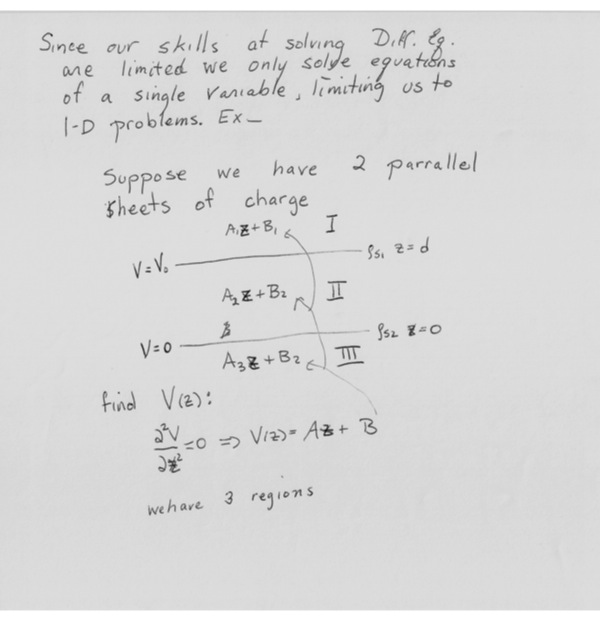 Since our skills at solving Diff. Eq.
are limited we only solve equations
of a single variable, limiting us to
1-D problems. Ex—
Suppose we have 2 parrallel
sheets of charge
A₁z+B₁ I
V=V₀ ρs₁ z=d
A₂z+B₂ II
V=0 ρs₂ z=0
A₃z+B₂ III
find V(z):
∂²V/∂z²=0 ⇒ V(z)= Az + B
we have 3 regions